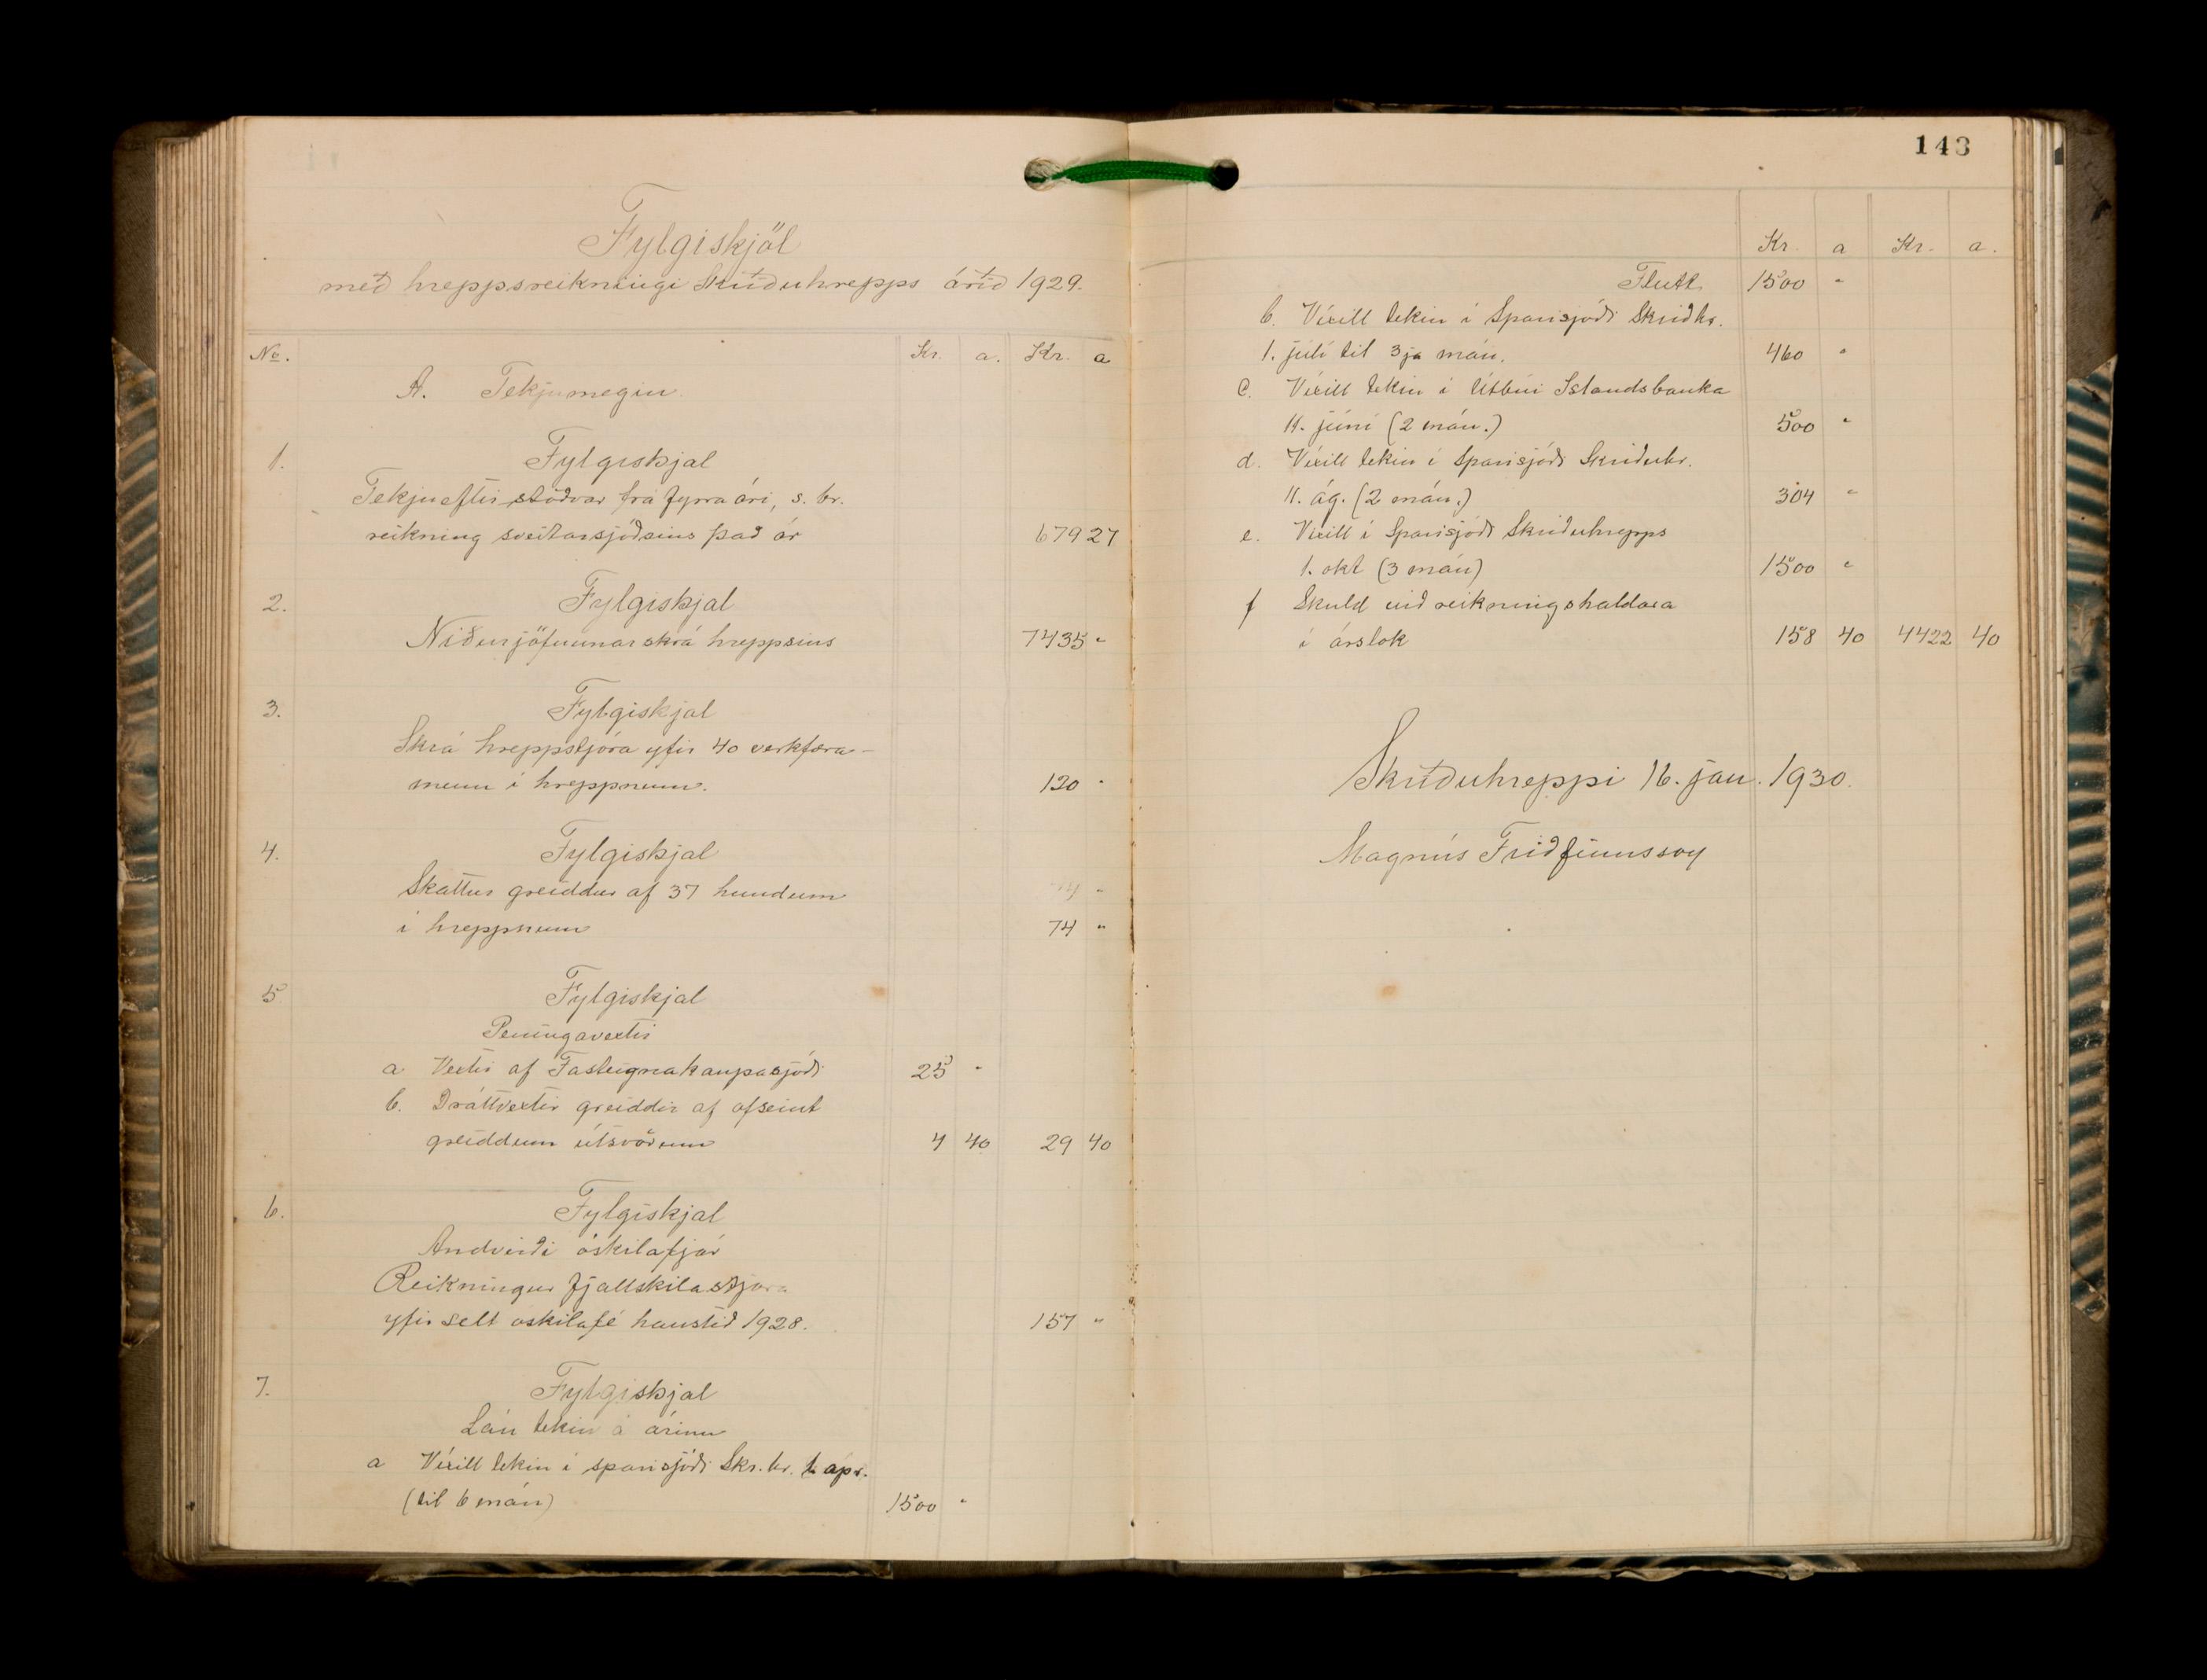 Fylgiskjöl
með hreppsreikningi Skriðuhrepps árið 1929.
No. Kr. a. Kr. a
A. Tekjumegin
1. Fylgiskjal
Tekjueftirstöðvar frá fyrra ári, s. br.
reikning sveitarsjóðsins það ár 679 27
2. Fylgiskjal
Niðurjöfnunarskrá hreppsins 7435 "
3. Fylgiskjal
Skrá hreppstjóra yfir 40 verkfæra-
menn í hreppnum. 120 "
4. Fylgiskjal
Skattur greiddur af 37 hundum
í hreppnum 74 "
5. Fylgiskjal
Peningavextir
a Vextir af Fasteignakaupasjóði 25 "
b. Dráttvextir greiddir af ofseint
greiddum útsvörum 4 40 29 40
6. Fylgiskjal
Andvirði óskilafjár
Reikningur fjallskilastjóra
yfir selt óskilafé haustið 1928. 157 "
7. Fylgiskjal
Lán tekin á árinu
a Víxill tekin í sparisjóði Skr.hr. 1. apr.
(til 6 mán) 1500 "
143
Kr. a Kr. a.
Flutt 1500 "
b. Víxill tekin í Sparisjóði Skriðhr.
1. júlí til 3ja mán. 460 "
c. Víxill tekin í Útbúi Íslandsbanka
11. júní (2 mán.) 500 "
d. Víxill tekin í Sparisjóði Skriðuhr.
11. ág. (2 mán.) 304 "
e. Víxill í Sparisjóði Skriðuhrepps
1. okt (3 mán) 1500 "
f Skuld við reikningshaldara
í árslok 158 40 4422 40
Skriðuhreppi 16. jan. 1930.
Magnús Friðfinnsson